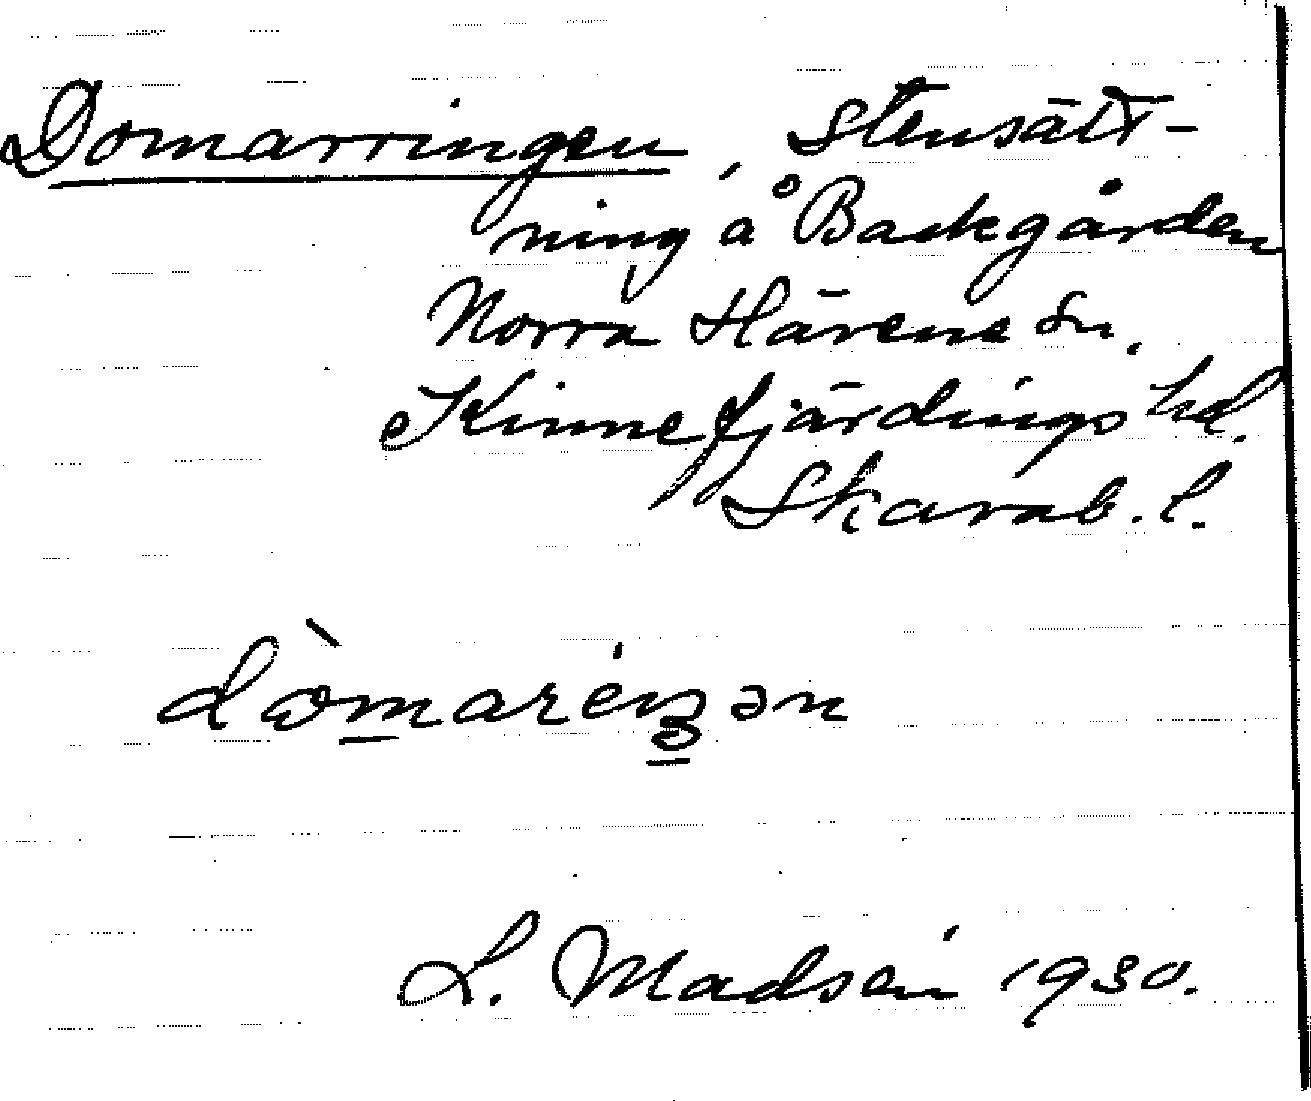 Domarringen, stensätt-
ning å Backgården
Norra Härene sn.
Kinnefjärdings hd.
Skarab. l.
L. Madsén 1930.